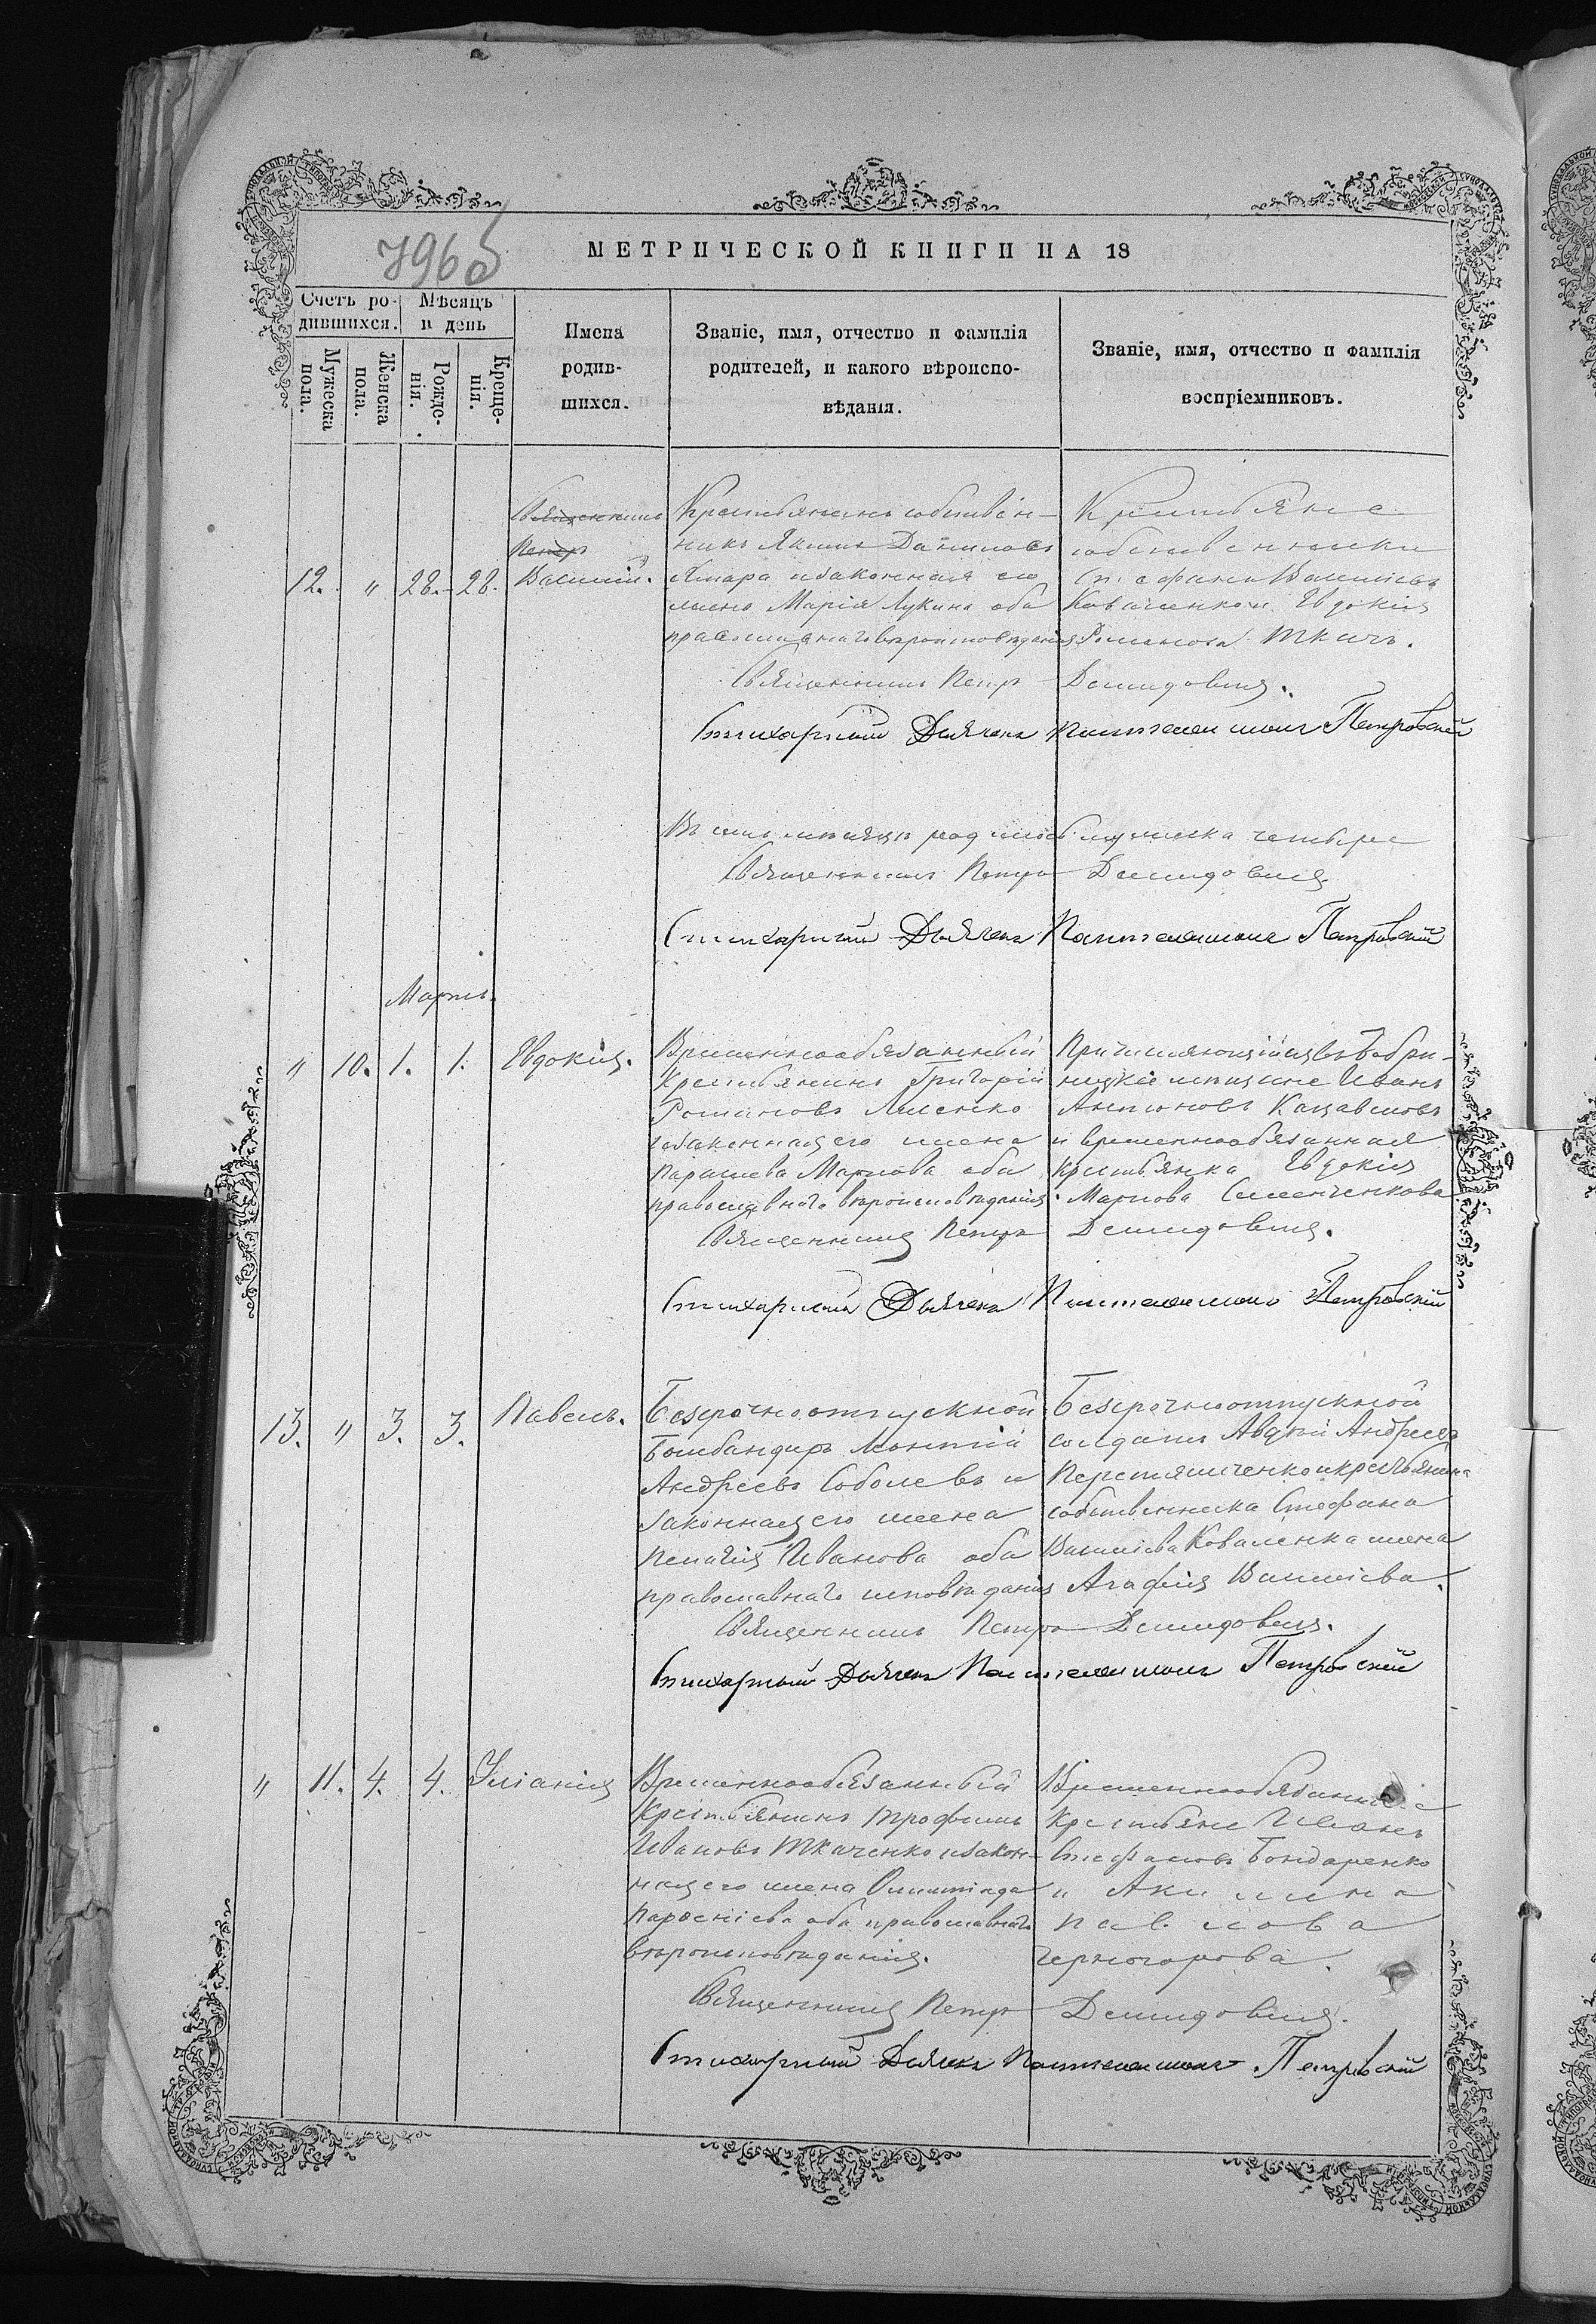 796б
МЕТРИЧЕСКОЙ КНИГИ НА 18
Счетъ ро-
дившихся.
Мужеска
пола.
Женска
пола.
Мѣсяцъ
и день
Рожде-
нія.
Креще-
нія.
Имена
родив-
шихся.
Званіе, имя, отчество и фамилія
родителей, и какого вѣроиспо-
вѣданія.
Званіе, имя, отчество и фамилія
воспріемниковъ.
12. " 28. 28.
Священникъ
Петръ
Василій.
Крестьянинъ собствен-
никъ Якимъ Даниловъ
и законная его
жена Марія Лукина оба
православнаго вѣроисповѣданія
Крестьяне
собственники
Стефанъ Василіевъ
Коваленко и Евдокія
Романова Ткачъ.
Священникъ Петръ Демидовичъ.
Стихарный Дьячекъ Пантелеимонъ Петровскій
Въ семъ мѣсяцѣ родилось мужеска четыре
Священникъ Петръ Демидовичъ
Стихарный Дьячекъ Пантелеимонъ Петровскій
Мартъ.
" 10. 1. 1.
Евдокія.
Временнообязанный
Крестьянинъ Григорій
Романовъ
и законная его жена
Параскева Маркова оба
православнаго вѣроисповѣданія.
Причисляющійся въ Бобри-
нецкіе мѣщане Иванъ
Антоновъ
и временнообязанная
крестьянка Евдокія
Маркова Семенченкова
Священникъ Петръ Демидовичъ.
Стихарный Дьячекъ Пантелеимонъ Петровскій
13. " 3. 3.
Павелъ.
Безсрочноотпускной
Бомбандиръ Леонтій
Андреевъ Соболевъ и
законная его жена
Пелагія Иванова оба
православнаго исповѣданія
Безсрочноотпускной
солдатъ Авдѣй Андреевъ
Перетятченко и крестьянина
собственника Стефана
Василіева Коваленка жена
Агафія Василіева.
Священникъ Петръ Демидовичъ.
Стихарный Дьячекъ Пантелеимонъ Петровскій
" 11. 4. 4.
Уліанія
Временнообязанный
Крестьянинъ Трофимъ
Ивановъ Ткаченко и закон-
ная его жена
Парѳеніева оба православнаго
вѣроисповѣданія.
Временнообязанные
Крестьяне Иванъ
Стефановъ Бондаренко
и Акилина
Павлова
Черногорова.
Священникъ Петръ Демидовичъ.
Стихарный Дьячекъ Пантелеимонъ Петровскій